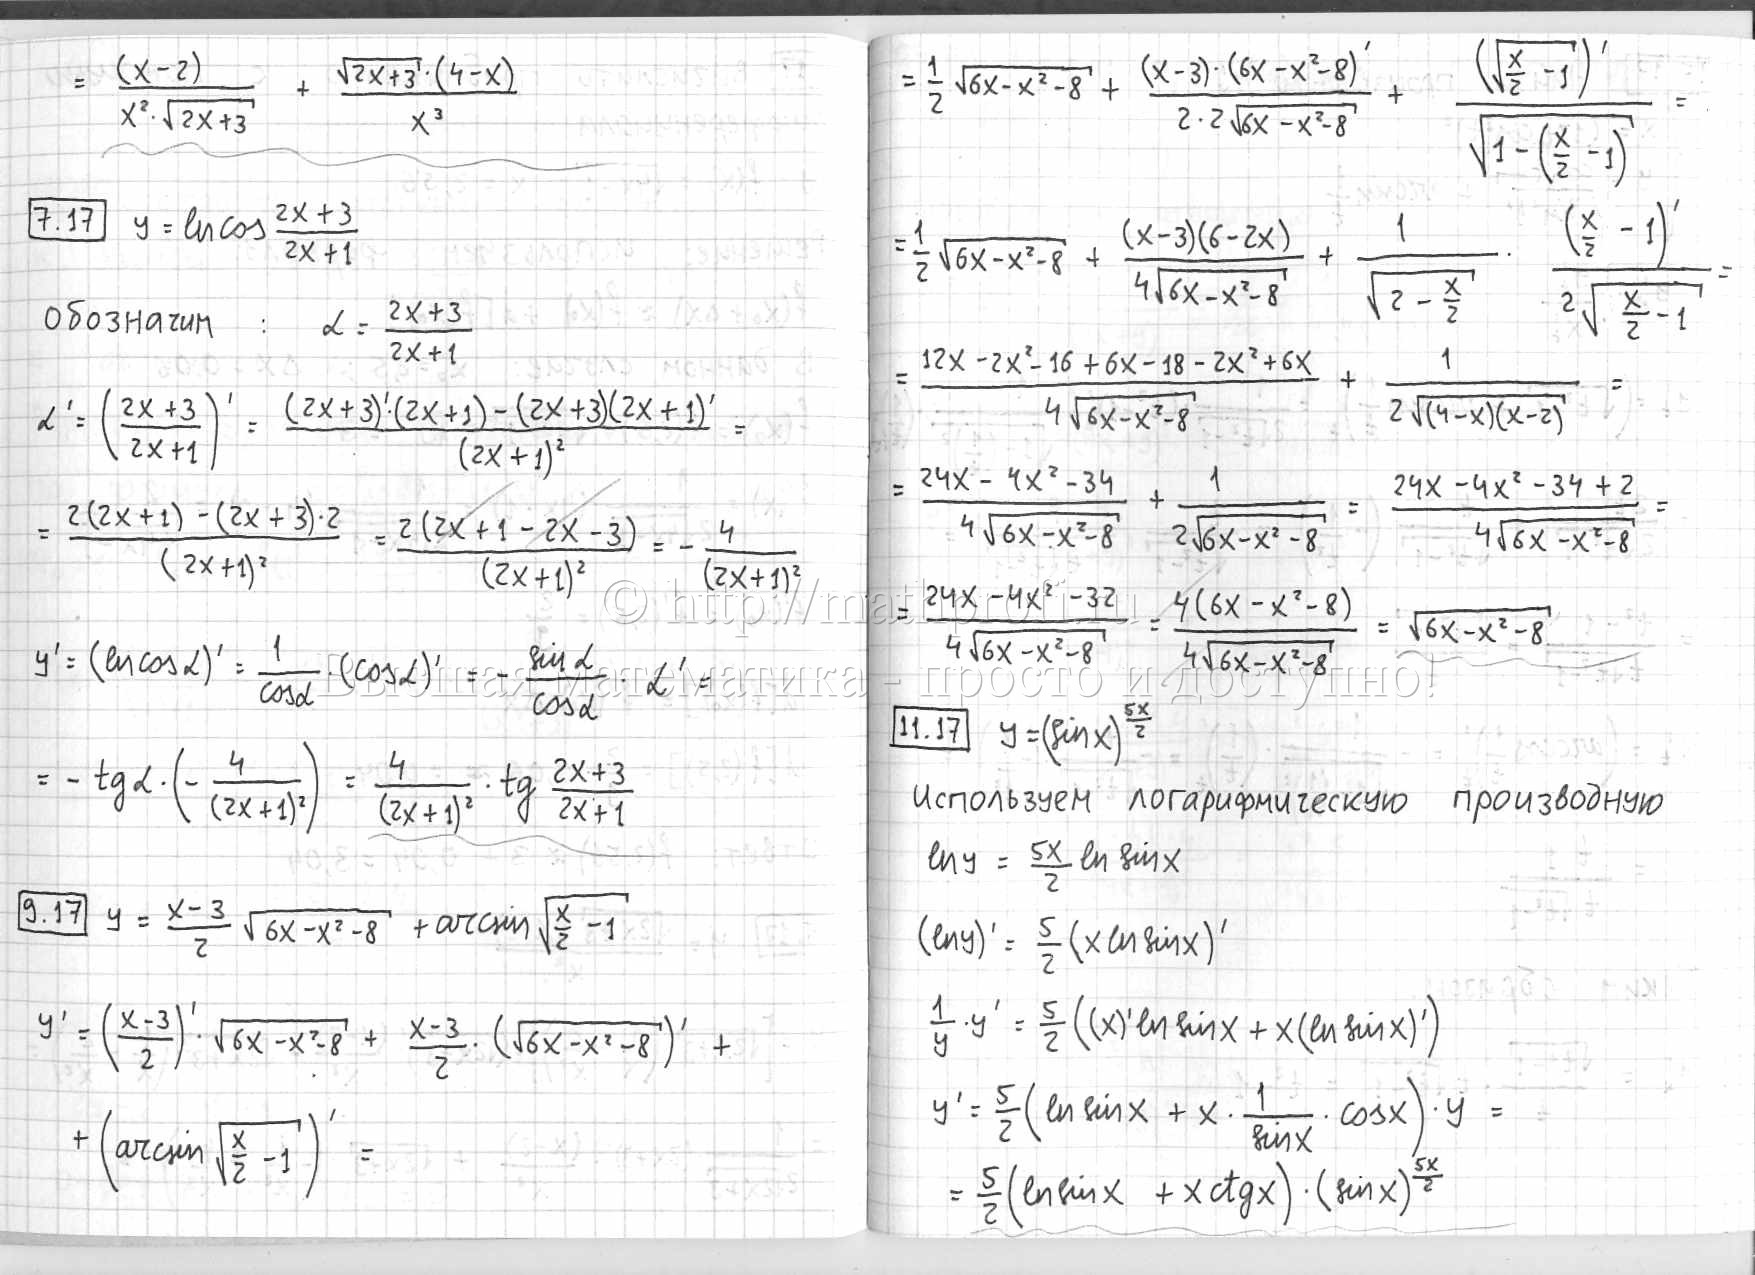 = (x-2)/(x²·√(2x+3)) + √(2x+3)·(4-x)/x³
7.17 y = ln cos (2x+3)/(2x+1)
Обозначим : α = (2x+3)/(2x+1)
α' = ((2x+3)/(2x+1))' = ((2x+3)'·(2x+1)-(2x+3)(2x+1)')/(2x+1)² =
= (2(2x+1)-(2x+3)·2)/(2x+1)² = 2(2x+1-2x-3)/(2x+1)² = - 4/(2x+1)²
y' = (ln cosα)' = 1/cosα · (cosα)' = - sinα/cosα · α' =
= - tgα·(- 4/(2x+1)²) = 4/(2x+1)² · tg (2x+3)/(2x+1)
9.17 y = (x-3)/2 √(6x-x²-8) + arcsin √(x/2 -1)
y' = ((x-3)/2)'·√(6x-x²-8) + (x-3)/2 · (√(6x-x²-8))' +
+ (arcsin √(x/2 -1))' =
= 1/2 √(6x-x²-8) + (x-3)·(6x-x²-8)'/(2·2√(6x-x²-8)) + (√(x/2 -1))'/√(1-(x/2 -1)) =
= 1/2 √(6x-x²-8) + (x-3)(6-2x)/(4√(6x-x²-8)) + 1/√(2 - x/2) · (x/2 -1)'/(2√(x/2 -1)) =
= (12x-2x²-16+6x-18-2x²+6x)/(4√(6x-x²-8)) + 1/(2√((4-x)(x-2))) =
= (24x-4x²-34)/(4√(6x-x²-8)) + 1/(2√(6x-x²-8)) = (24x-4x²-34+2)/(4√(6x-x²-8)) =
= (24x-4x²-32)/(4√(6x-x²-8)) = 4(6x-x²-8)/(4√(6x-x²-8)) = √(6x-x²-8)
11.17 y = (sinx)^(5x/2)
Используем логарифмическую производную
lny = 5x/2 ln sinx
(lny)' = 5/2 (x ln sinx)'
1/y · y' = 5/2 ((x)' ln sinx + x(ln sinx)')
y' = 5/2 (ln sinx + x · 1/sinx · cosx)·y =
= 5/2 (ln sinx + x ctgx)·(sinx)^(5x/2)
© http://mathprofi.ru
Высшая математика - просто и доступно!